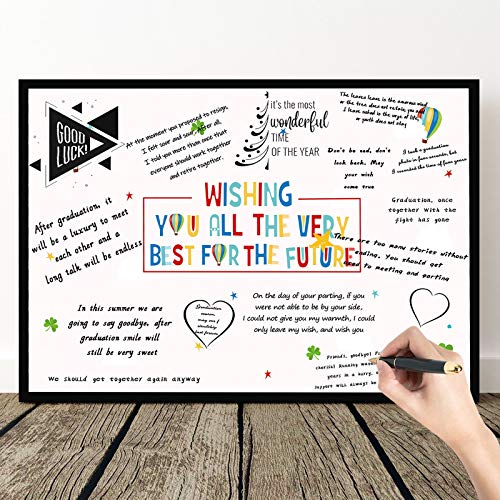 GOOD
LUCK!
At the moment you proposed to resign,
I felt sore and sour. After all,
I told you more than once that
everyone should work together
and retire together.
it's the most
wonderful
TIME
OF THE YEAR
The leaves leave is the
or the tree does not retain, you and
I are naked in the
or youth does not stay
Don't be sad, don't
look back. May your
wish
come true
I took a graduation
photo in four seconds, but
I recorded the time of four years
Graduation, once
together With the
fight has gone
After graduation, it
will be a luxury to meet
each other and a
long talk will be endless
WISHING
YOU ALL THE VERY
BEST FOR THE FUTURE
There are too many stories without
ending. You should get
used to meeting and parting
In this summer we are
going to say goodbye, after
graduation smile will
still be very sweet
Graduation
forever
On the day of your parting, if you
were not able to be by your side,
I could not give you my warmth, I could
only leave my wish, and wish you
Friends, goodbye!
cherish!
years in a hurry,
Support will always be
We should get together again anyway